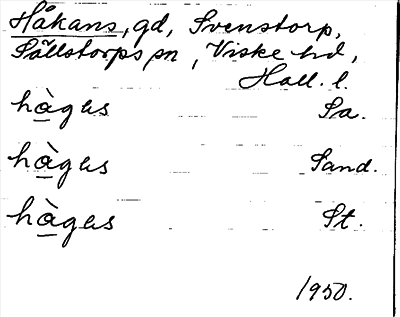 Håkans, gd, Svenstorp,
Sällstorps sn, Viske hd,
Hall. l.
hàgas Sa.
hàgas Sand.
hàgas St.
1950.